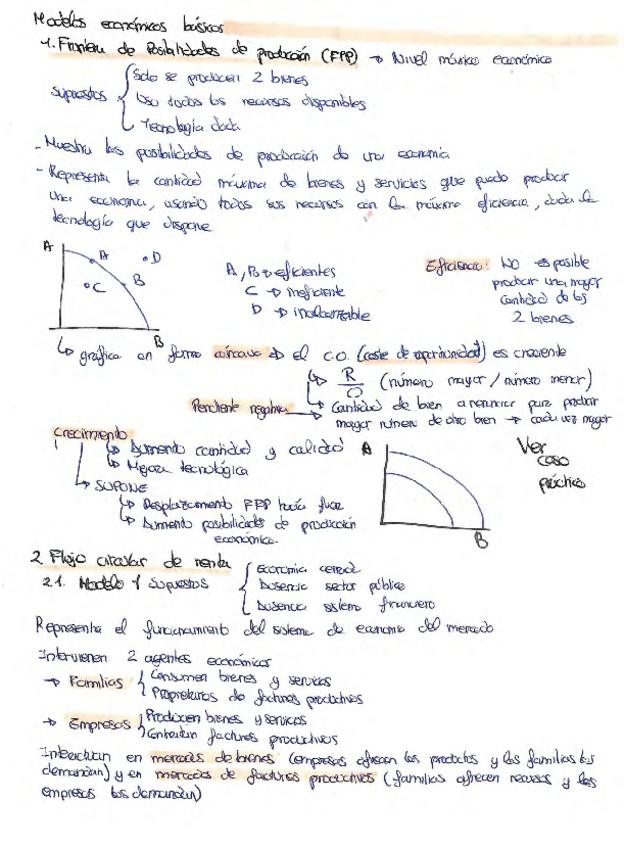 Modelos económicos básicos
1. Frontera de Posibilidades de producción (FPP) → Nivel máximo económico
Supuestos { Solo se producen 2 bienes
Uso todos los recursos disponibles
Tecnología dada
- Muestra las posibilidades de producción de una economía
- Representa la cantidad máxima de bienes y servicios que puede producir
una economía, usando todos sus recursos con la máxima eficiencia, dada la
tecnología que dispone
A
A
B
C
D
B
A, B → eficientes
C → ineficiente
D → inalcanzable
Eficiencia: No es posible
producir una mayor
cantidad de los
2 bienes
↳ gráfica en forma cóncava → el C.O. (coste de oportunidad) es creciente
↳ R/O (número mayor / número menor)
Pendiente negativa → Cantidad de bien a renunciar para producir
mayor número de otro bien → cada vez mayor
Crecimiento
↳ Aumento cantidad y calidad
↳ Mejora tecnológica
↳ SUPONE
↳ Desplazamiento FPP hacia fuera
↳ Aumento posibilidades de producción
económica.
A
B
Ver
caso
práctico
2 Flujo circular de renta
2.1. Modelo y Supuestos { Economía cerrada
Ausencia sector público
Ausencia sistema financiero
Representa el funcionamiento del sistema de economía del mercado
Intervienen 2 agentes económicos
→ Familias { Consumen bienes y servicios
Propietarios de factores productivos
→ Empresas { Producen bienes y servicios
Contratan factores productivos
Interactúan en mercados de bienes (empresas ofrecen los productos y las familias los
demandan) y en mercados de factores productivos (familias ofrecen recursos y las
empresas los demandan)